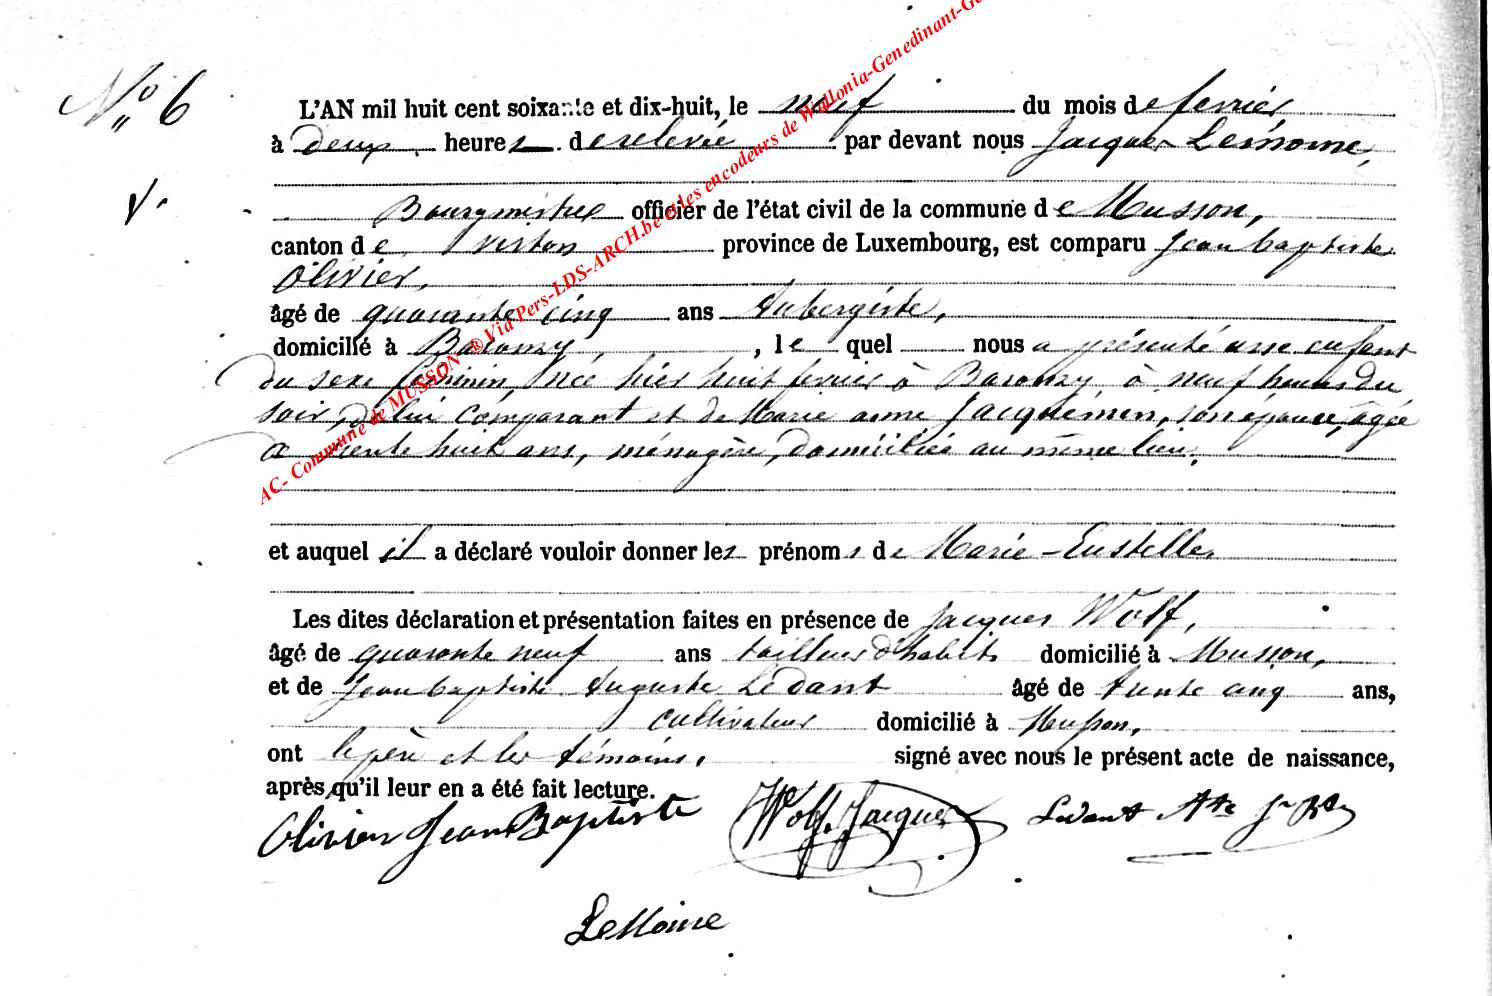 N° 6
L'AN mil huit cent soixante et dix-huit, le neuf du mois de fevrier
à deux heures de relevée par devant nous Jacques Lemoine,
Bourgmestre officier de l'état civil de la commune de Musson,
canton de Virton province de Luxembourg, est comparu Jean baptiste
Olivier,
âgé de quarante cinq ans Aubergiste,
domicilié à Baranzy, le quel nous a présenté une enfant
du sexe féminin, née hier huit fevrier à Baranzy à neuf heures du
soir, de lui comparant et de Marie anne Jacquemin, son épouse, âgée
de trente huit ans, ménagère, domiciliée au même lieu.
et auquel il a déclaré vouloir donner les prénoms de Marie-Eustelle
Les dites déclaration et présentation faites en présence de Jacques Wolf,
âgé de quarante neuf ans tailleur d'habits domicilié à Musson,
et de Jean baptiste Auguste Ledant âgé de trente cinq ans,
cultivateur domicilié à Musson,
ont le père et les témoins, signé avec nous le présent acte de naissance,
après qu'il leur en a été fait lecture.
Olivier Jean Baptiste Wolf Jacques Ledant Ate Jn Bte
LeMoine
AC- Commune de MUSSON ® Via Pers-LDS-ARCH.be et les encodeurs de Wallonia-Genedinant-Ge